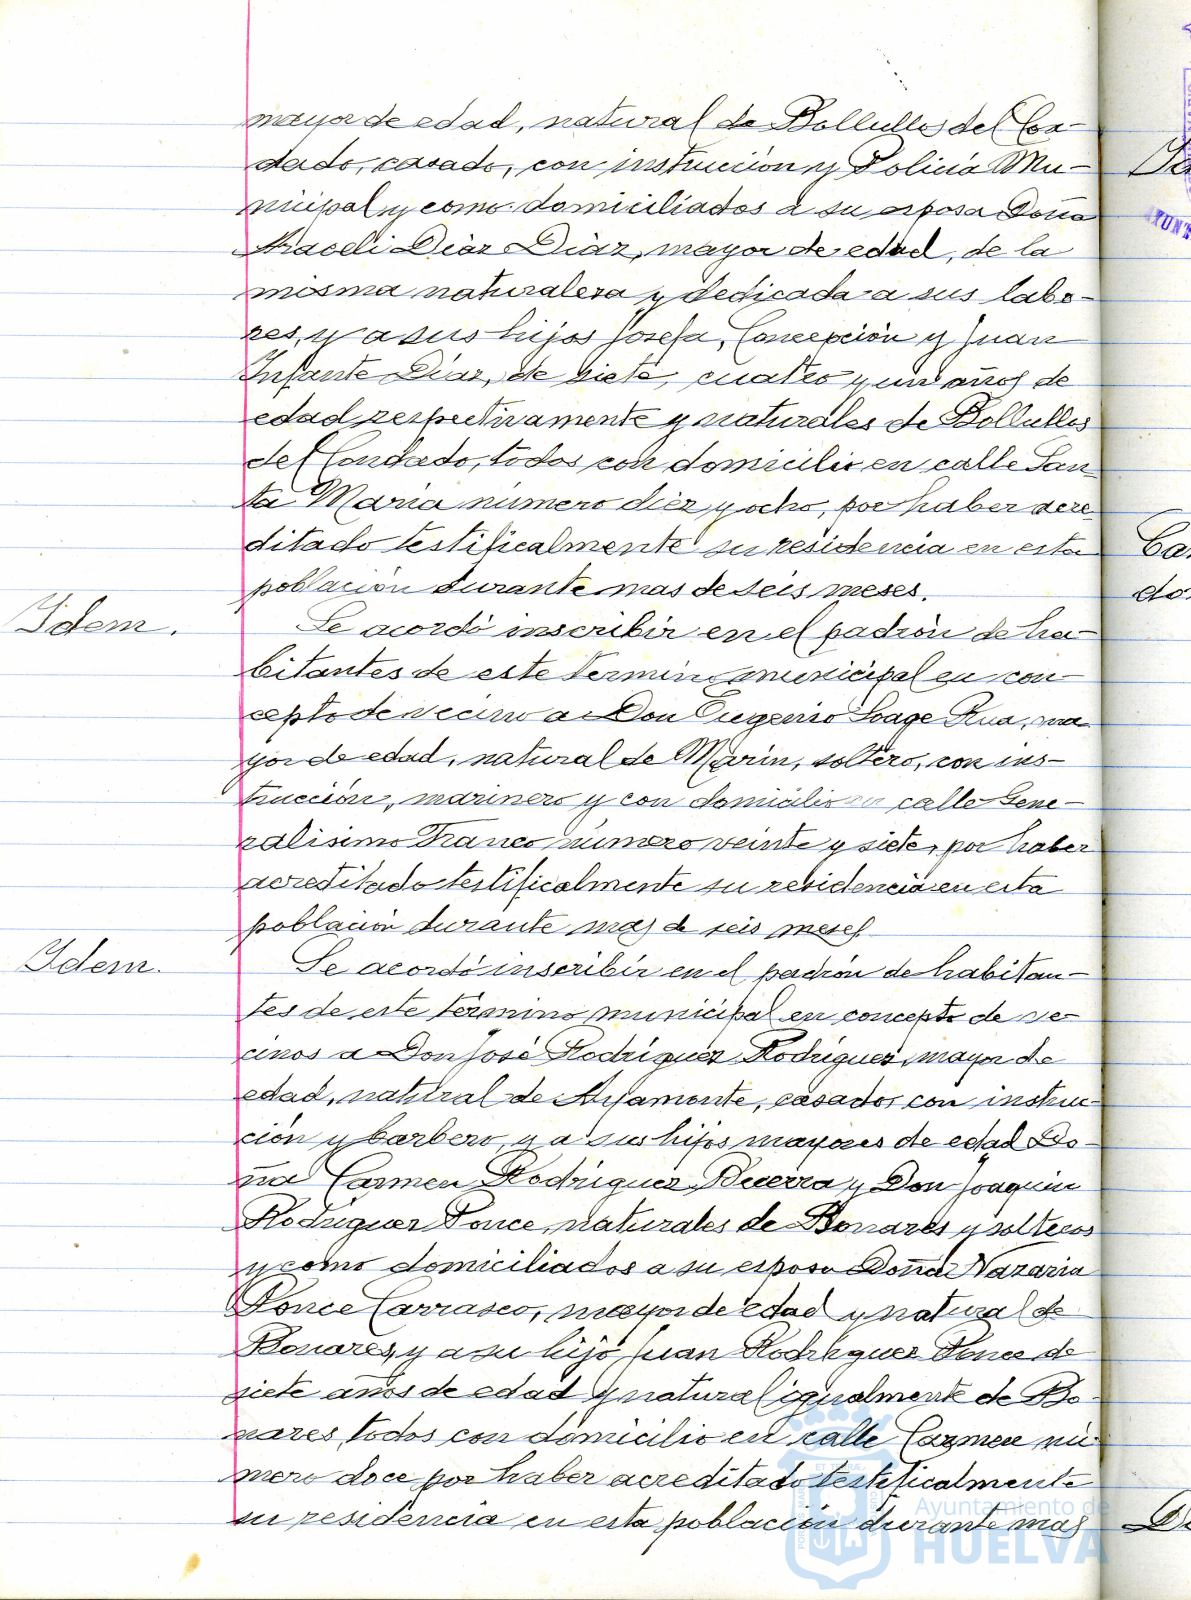 mayor de edad, natural de Bollullos del Con-
dado, casado, con instrucción y Policia Mu-
nicipal y como domiciliados a su esposa Doña
Araceli Diaz Diaz, mayor de edad, de la
misma naturaleza y dedicada a sus labo-
res, y a sus hijos Josefa, Concepción y Juan
Infante Diaz, de siete, cuatro y un años de
edad respectivamente y naturales de Bollullos
del Condado, todos con domicilio en calle San-
ta Maria número diez y ocho, por haber acre-
ditado testificalmente su residencia en esta
población durante mas de seis meses.
Idem.
Se acordó inscribir en el padrón de ha-
bitantes de este termino municipal en con-
cepto de vecino a Don Eugenio Soage Rua, ma-
yor de edad, natural de Marin, soltero, con ins-
trucción, marinero y con domicilio en calle Gene-
ralisimo Franco número veinte y siete, por haber
acreditado testificalmente su residencia en esta
población durante mas de seis meses.
Idem.
Se acordó inscribir en el padrón de habitan-
tes de este término municipal en concepto de ve-
cinos a Don José Rodriguez Rodriguez, mayor de
edad, natural de Ayamonte, casado, con instruc-
ción y barbero, y a sus hijos mayores de edad Do-
ña Carmen Rodriguez Becerra y Don Joaquin
Rodriguez Ponce, naturales de Bonares y solteros
y como domiciliados a su esposa Doña Nazaria
Ponce Carrasco, mayor de edad y natural de
Bonares, y a su hijo Juan Rodriguez Ponce de
siete años de edad y natural igualmente de Bo-
nares, todos con domicilio en calle Carmen nú-
mero doce por haber acreditado testificalmente
su residencia en esta población durante mas
Ayuntamiento de
HUELVA